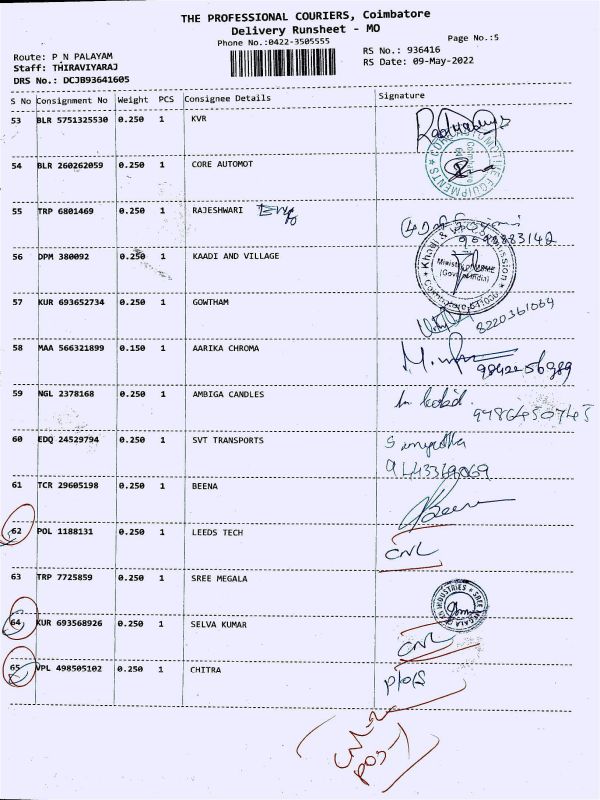 THE PROFESSIONAL COURIERS, Coimbatore
Delivery Runsheet - MO
Phone No.:0422-3505555
Page No.:5
Route: P N PALAYAM
RS No.: 936416
Staff: THIRAVIYARAJ
RS Date: 09-May-2022
DRS No.: DCJB93641605
S No Consignment No Weight PCS Consignee Details Signature
53 BLR 5751325530 0.250 1 KVR
54 BLR 260262059 0.250 1 CORE AUTOMOT
55 TRP 6801469 0.250 1 RAJESHWARI
56 DPM 380092 0.250 1 KAADI AND VILLAGE
57 KUR 693652734 0.250 1 GOWTHAM 8220361064
58 MAA 566321899 0.150 1 AARIKA CHROMA
59 NGL 2378168 0.250 1 AMBIGA CANDLES
60 EDQ 24529794 0.250 1 SVT TRANSPORTS
61 TCR 29605198 0.250 1 BEENA Beena
62 POL 1188131 0.250 1 LEEDS TECH CNL
63 TRP 7725859 0.250 1 SREE MEGALA
64 KUR 693568926 0.250 1 SELVA KUMAR CNL
65 VPL 498505102 0.250 1 CHITRA